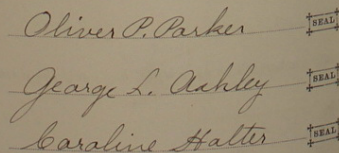 Oliver P. Parker SEAL
George L. Ashley SEAL
Caroline Halter SEAL